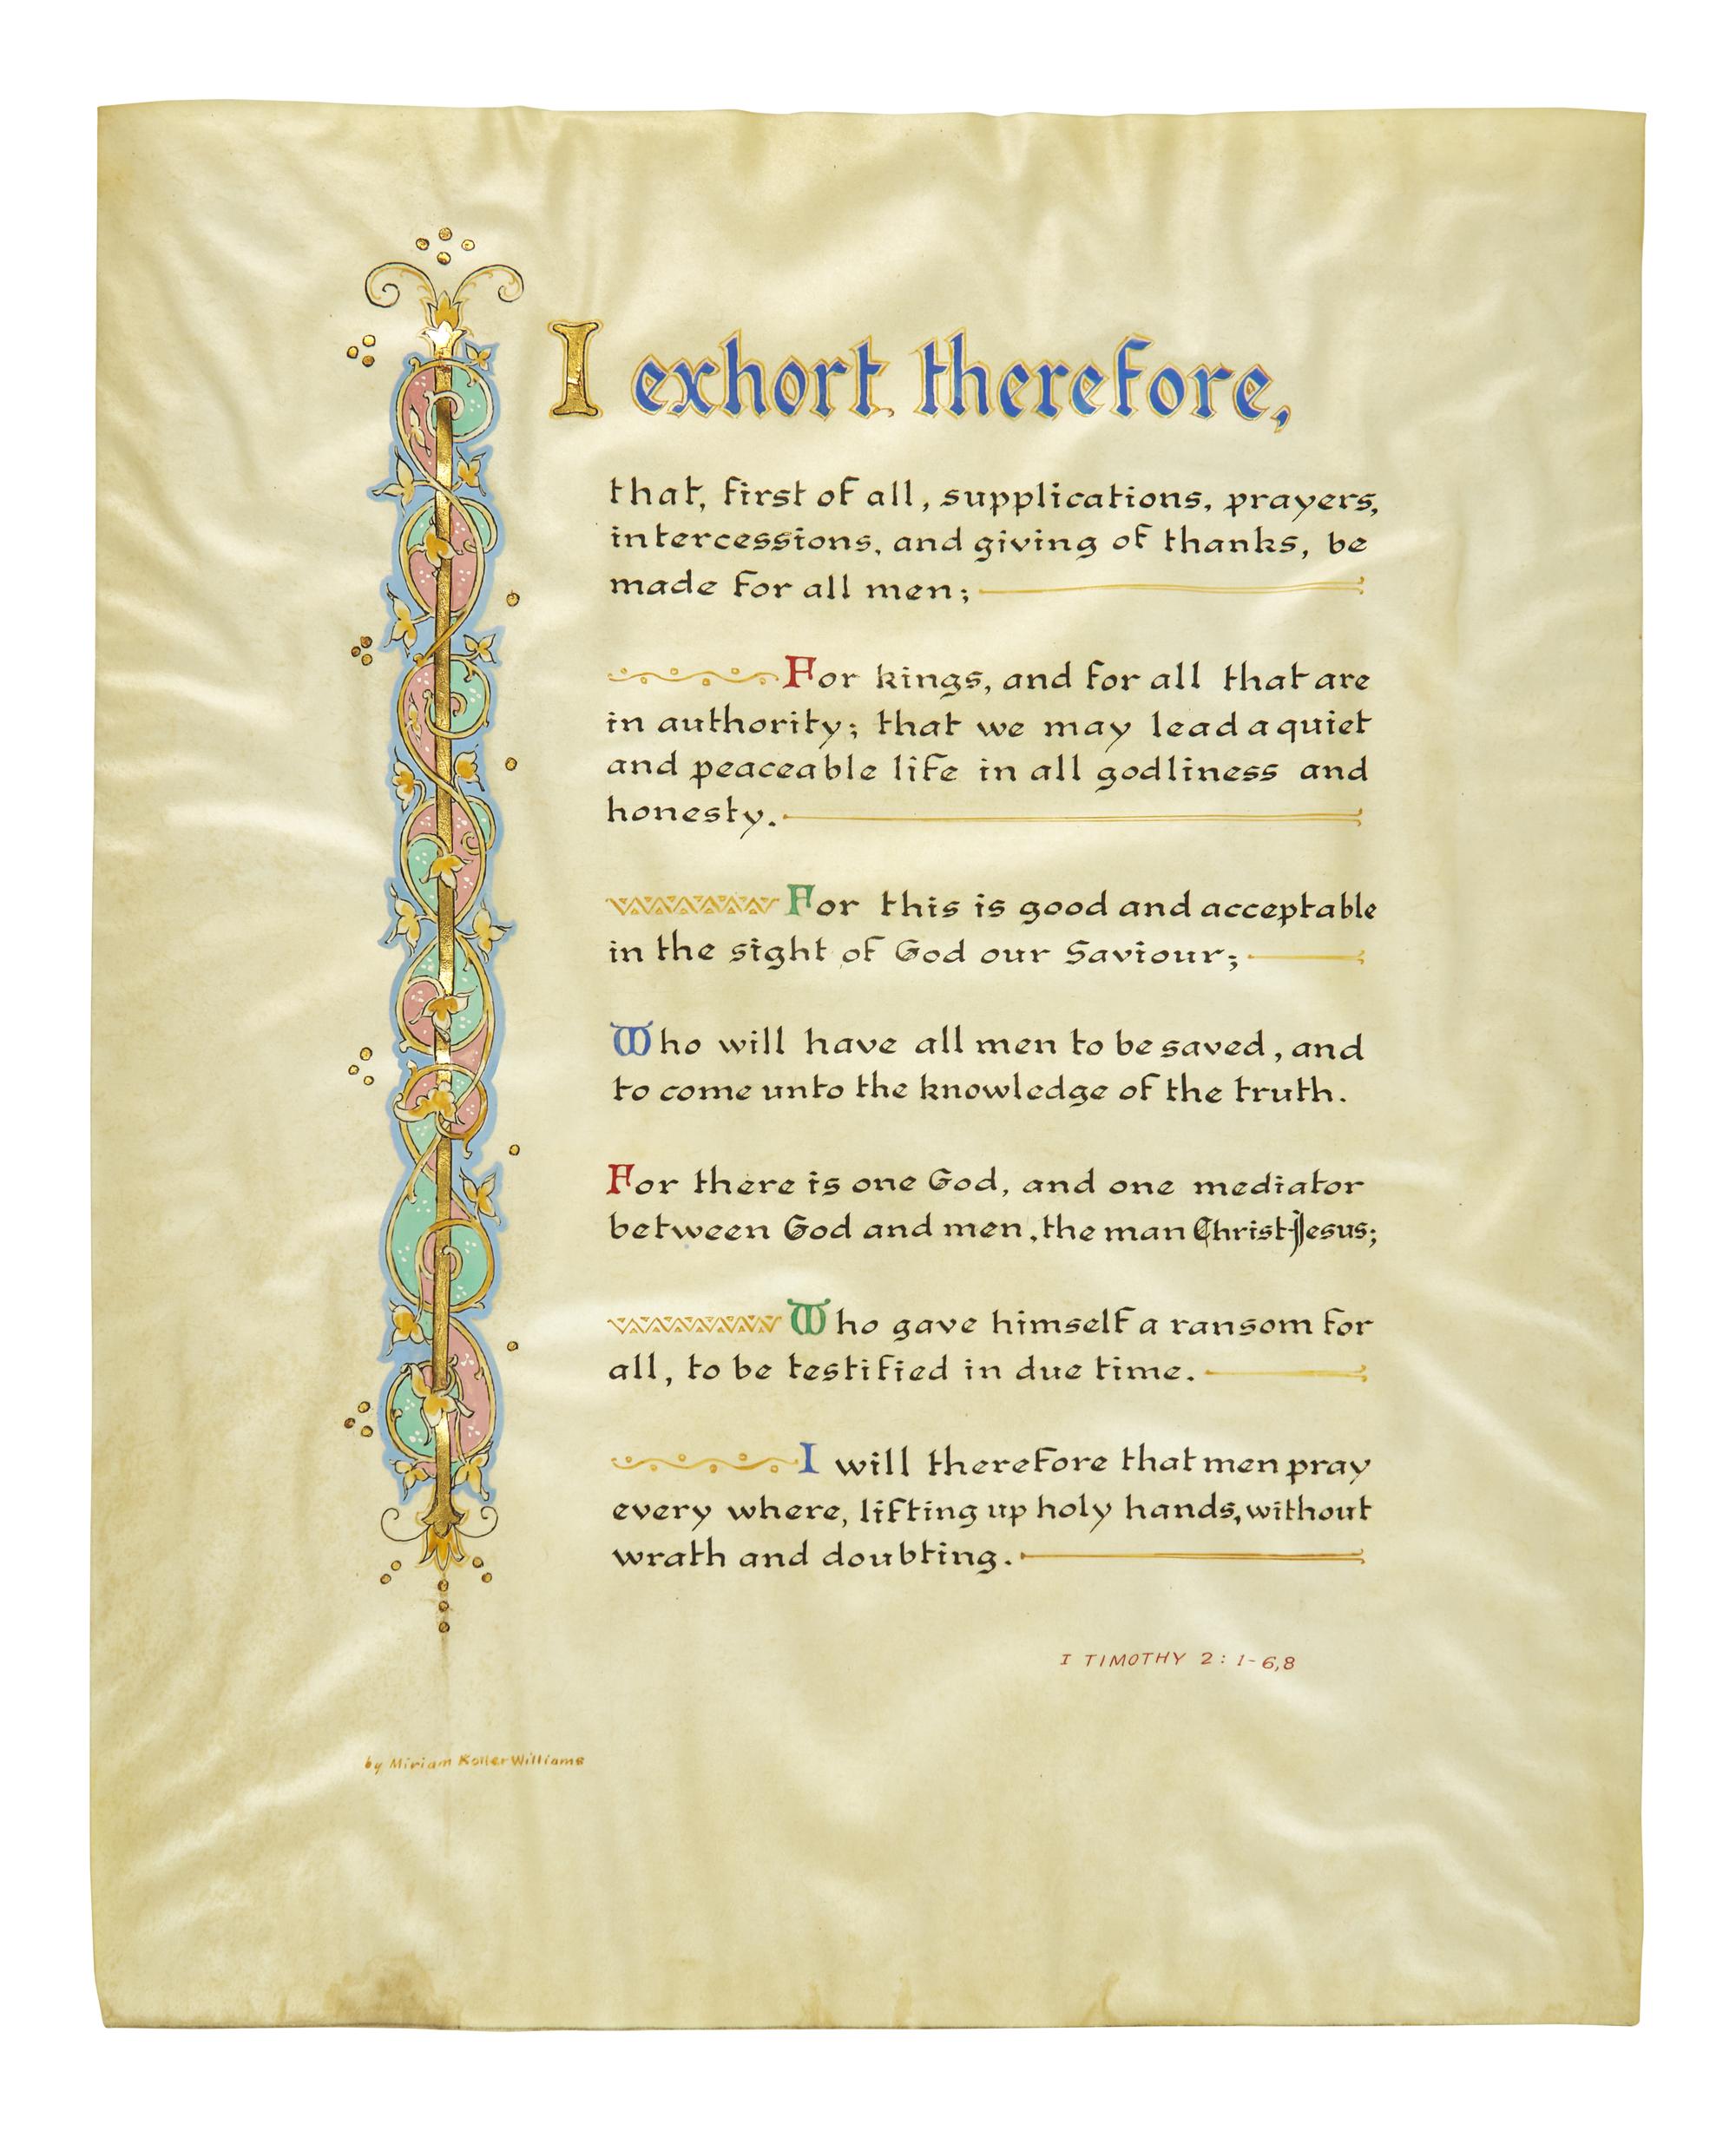 I exhort therefore,
that, first of all, supplications, prayers,
intercessions, and giving of thanks, be
made for all men;
For kings, and for all that are
in authority; that we may lead a quiet
and peaceable life in all godliness and
honesty.
For this is good and acceptable
in the sight of God our Saviour;
Who will have all men to be saved, and
to come unto the knowledge of the truth.
For there is one God, and one mediator
between God and men, the man Christ Jesus;
Who gave himself a ransom for
all, to be testified in due time.
I will therefore that men pray
every where, lifting up holy hands, without
wrath and doubting.
I TIMOTHY 2: 1-6,8
by Miriam Koller Williams